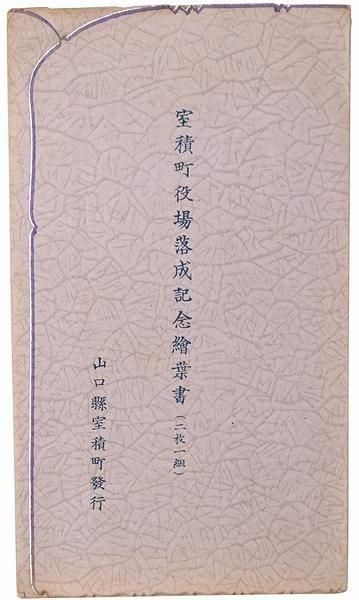 室積町役場落成記念繪葉書(二枚一組)
山口縣室積町發行